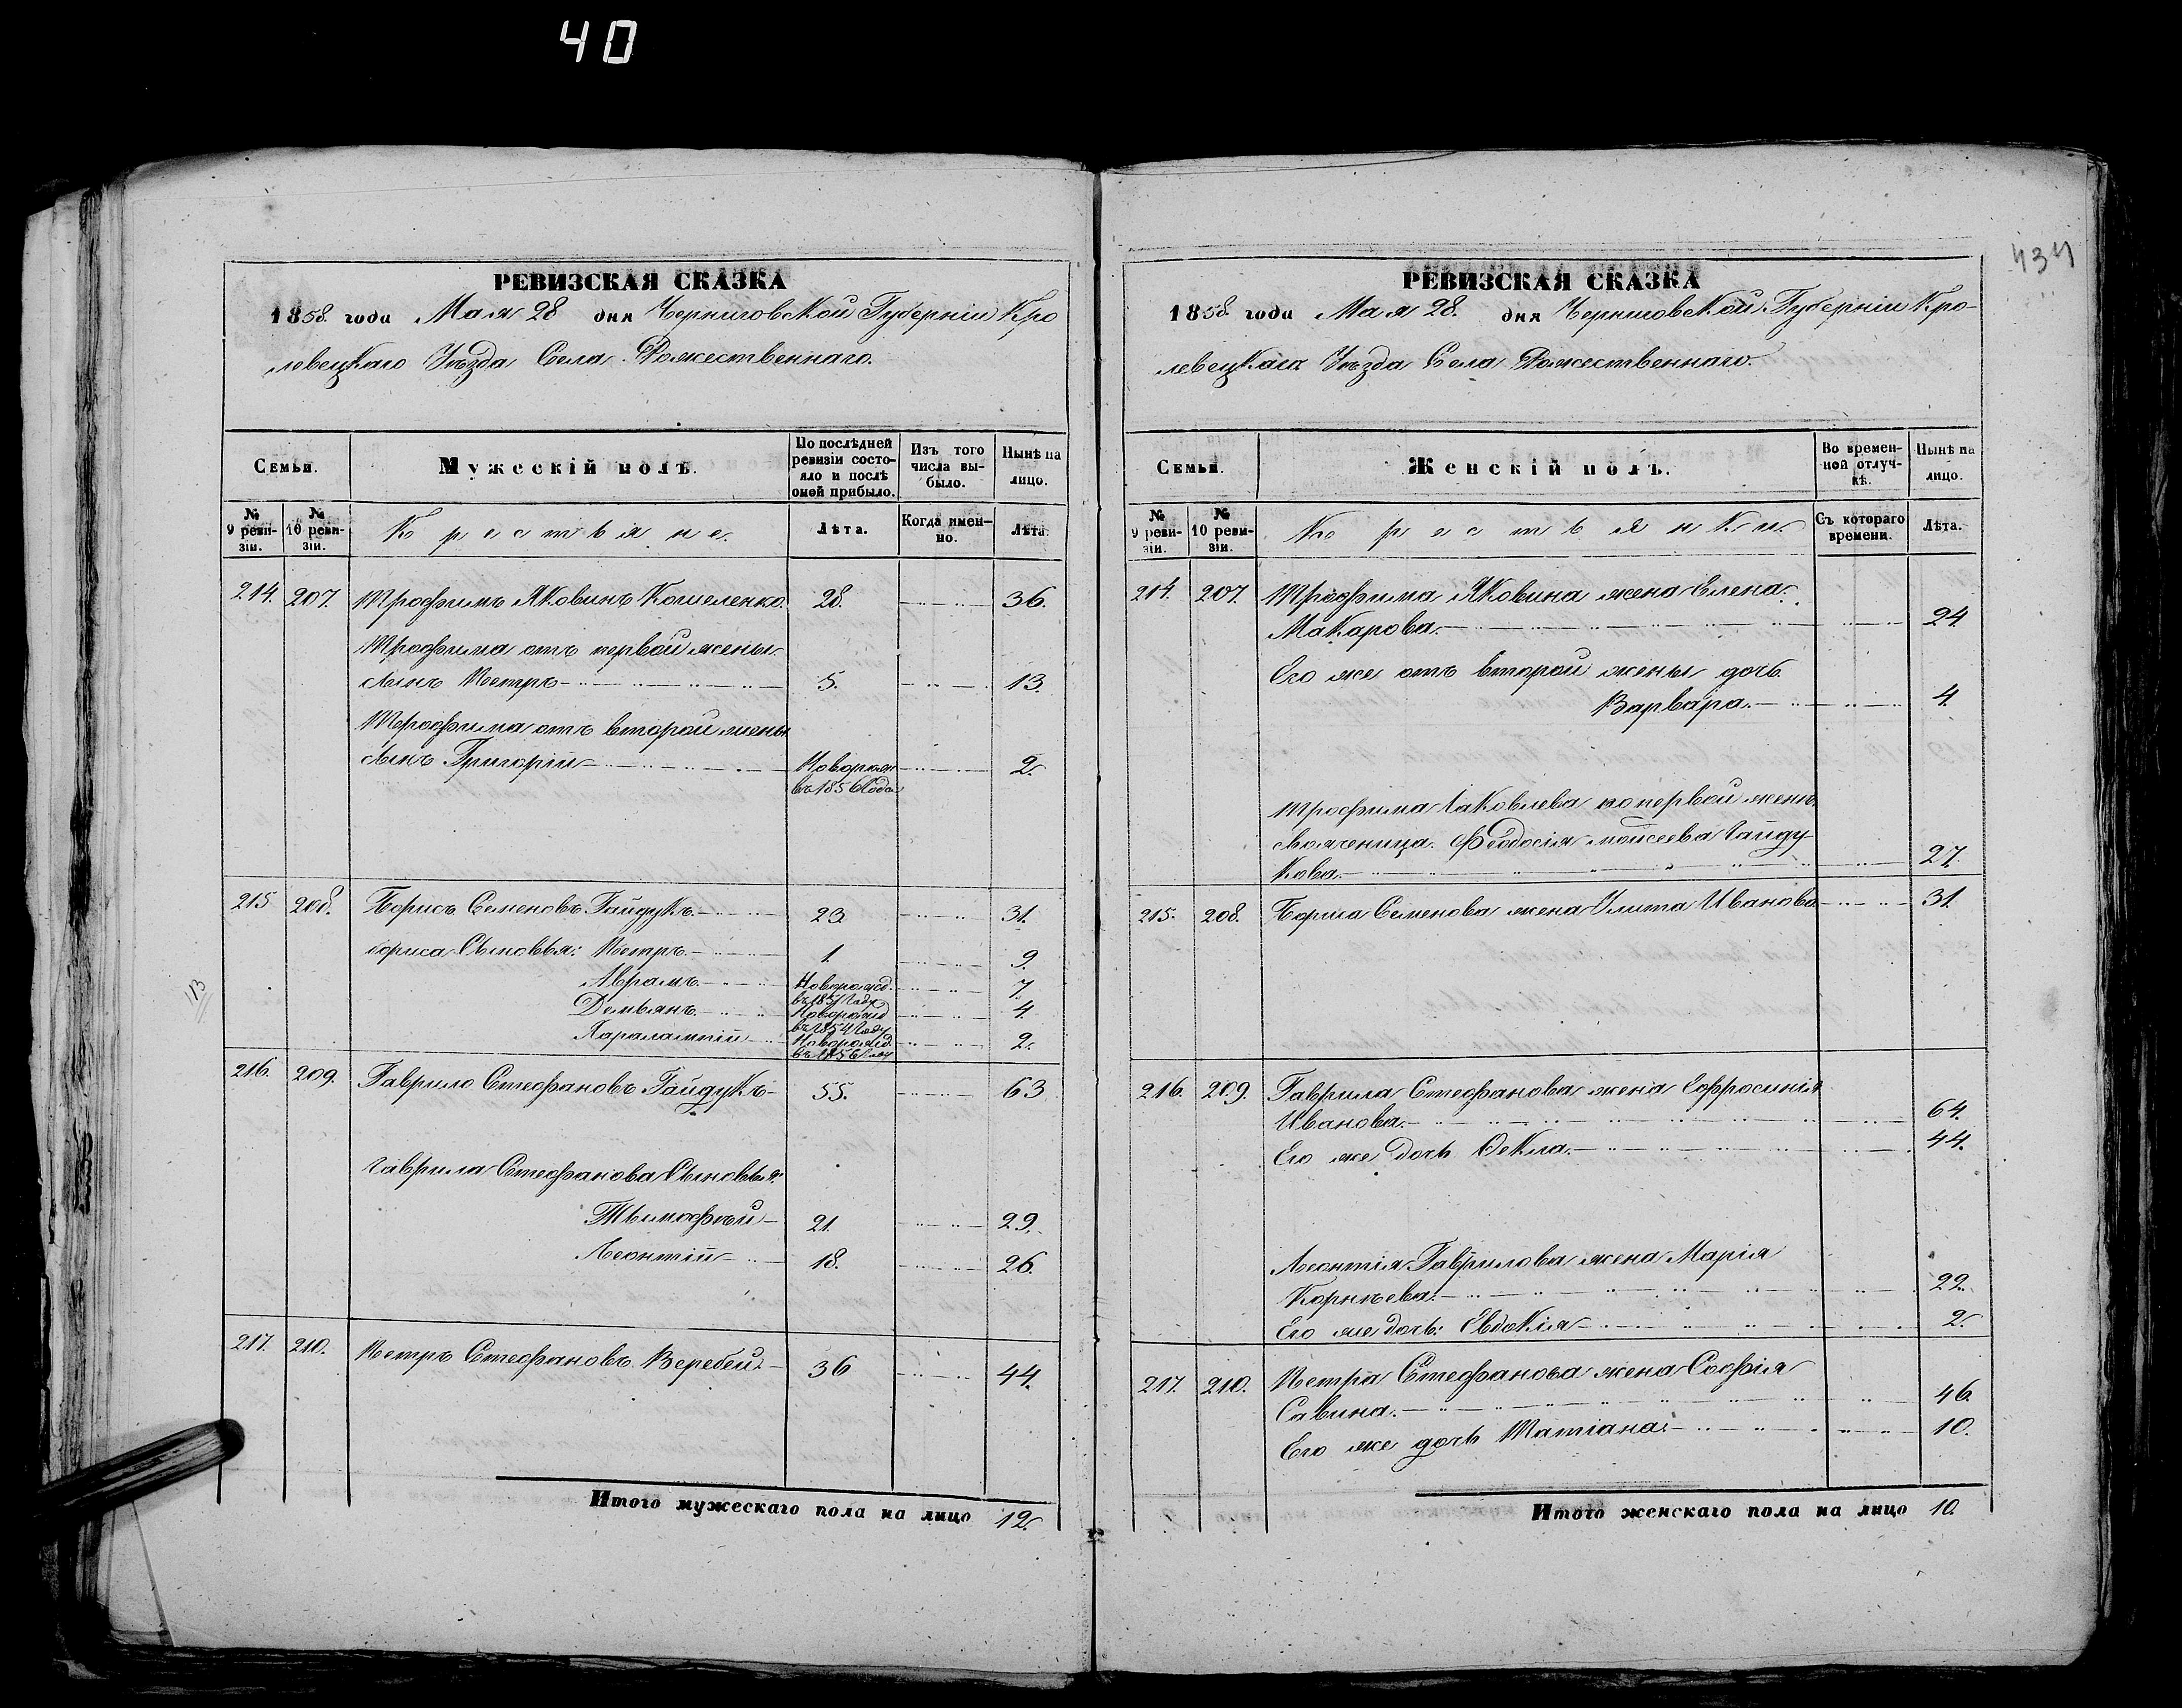 40
434
РЕВИЗСКАЯ СКАЗКА
1858. года Мая 28 дня Черниговской Губерніи Кро
левецкаго Уѣзда Села Рожественнаго.
Семьи.
Мужескій полъ.
По послѣдней
ревизіи состо-
яло и послѣ
оной прибыло.
Изъ того
числа вы-
было.
Нынѣ на
лицо.
№
9 реви-
зіи.
№
10 реви-
зіи.
Крестьяне.
Лѣта.
Когда имен-
но.
Лѣта.
214. 207. Трофимъ Яковинъ Кошеленко. 28. 36.
Трофима отъ первой жены
сынъ Петръ 5. 13.
Трофима отъ второй жены
сынъ Григорій Новорож 2.
въ 1856 Года
215 208. Борисъ Семеновъ Гайдукъ. 23 31.
Бориса Сыновья: Петръ. 1. 9.
Аврамъ. Новорожд. 7.
въ 1851 Году
Демьянъ. Новорожд 4.
въ 1854 Году
Харалампій Новорожд. 2.
въ 1856 Году
216. 209. Гаврило Стефановъ Гайдукъ 55. 63
Гаврила Стефанова Сыновья:
Тымофѣй 21. 29.
Леонтій 18. 26.
217. 210. Петръ Стефановъ Веребей 36 44.
Итого мужескаго пола на лицо 12.
РЕВИЗСКАЯ СКАЗКА
1858. года Мая 28. дня Черниговской Губерніи Кро-
левецкаго Уѣзда Села Рожественнаго.
Семьи.
Женскій полъ.
Во времен-
ной отлуч-
кѣ.
Нынѣ на
лицо.
№
9 реви-
зіи.
№
10 реви-
зіи.
Крестьянки.
Съ котораго
времени.
Лѣта.
214. 207. Трофима Яковина жена Елена
Макарова. 24.
Его же отъ второй жены дочь
Варвара. 4.
Трофима Іаковлева по первой женѣ
свояченица Феодосія Мойсеева Гайду-
кова. 27.
215. 208. Бориса Семенова жена Улита Иванова 31.
216. 209. Гаврила Стефанова жена Ефросинія
Иванова. 64.
Его же дочь Ѳекла. 44.
Леонтія Гаврилова жена Марія
Корнѣева. 22.
Его же дочь: Евдокія 2.
217. 210. Петра Стефанова жена Софія
Савина. 46.
Его же дочь Татіана. 10.
Итого женскаго пола на лицо 10.